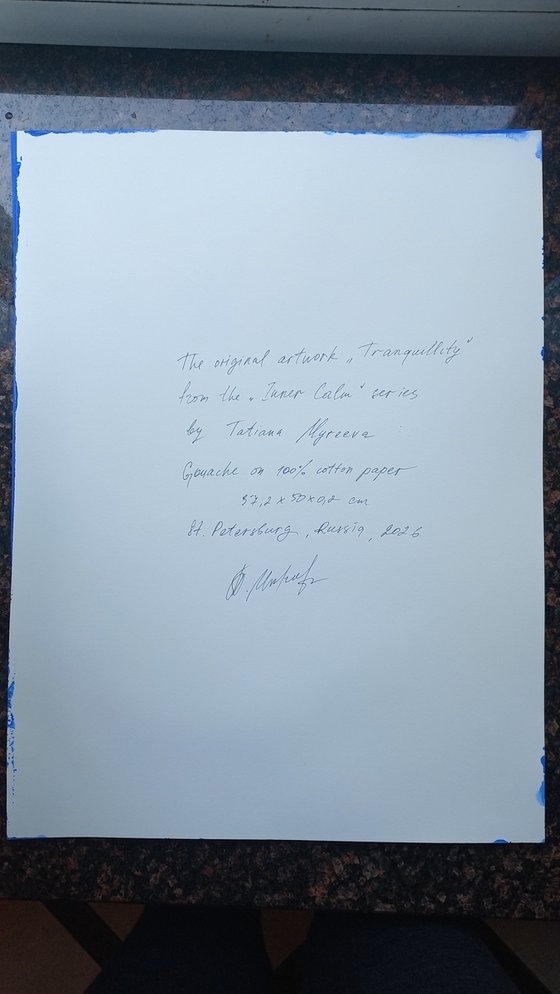 The original artwork „Tranquillity"
from the „Inner Calm" series
by Tatiana Myreeva
Gouache on 100% cotton paper
37,2 x 50 x 0,2 cm
St. Petersburg, Russia, 2026